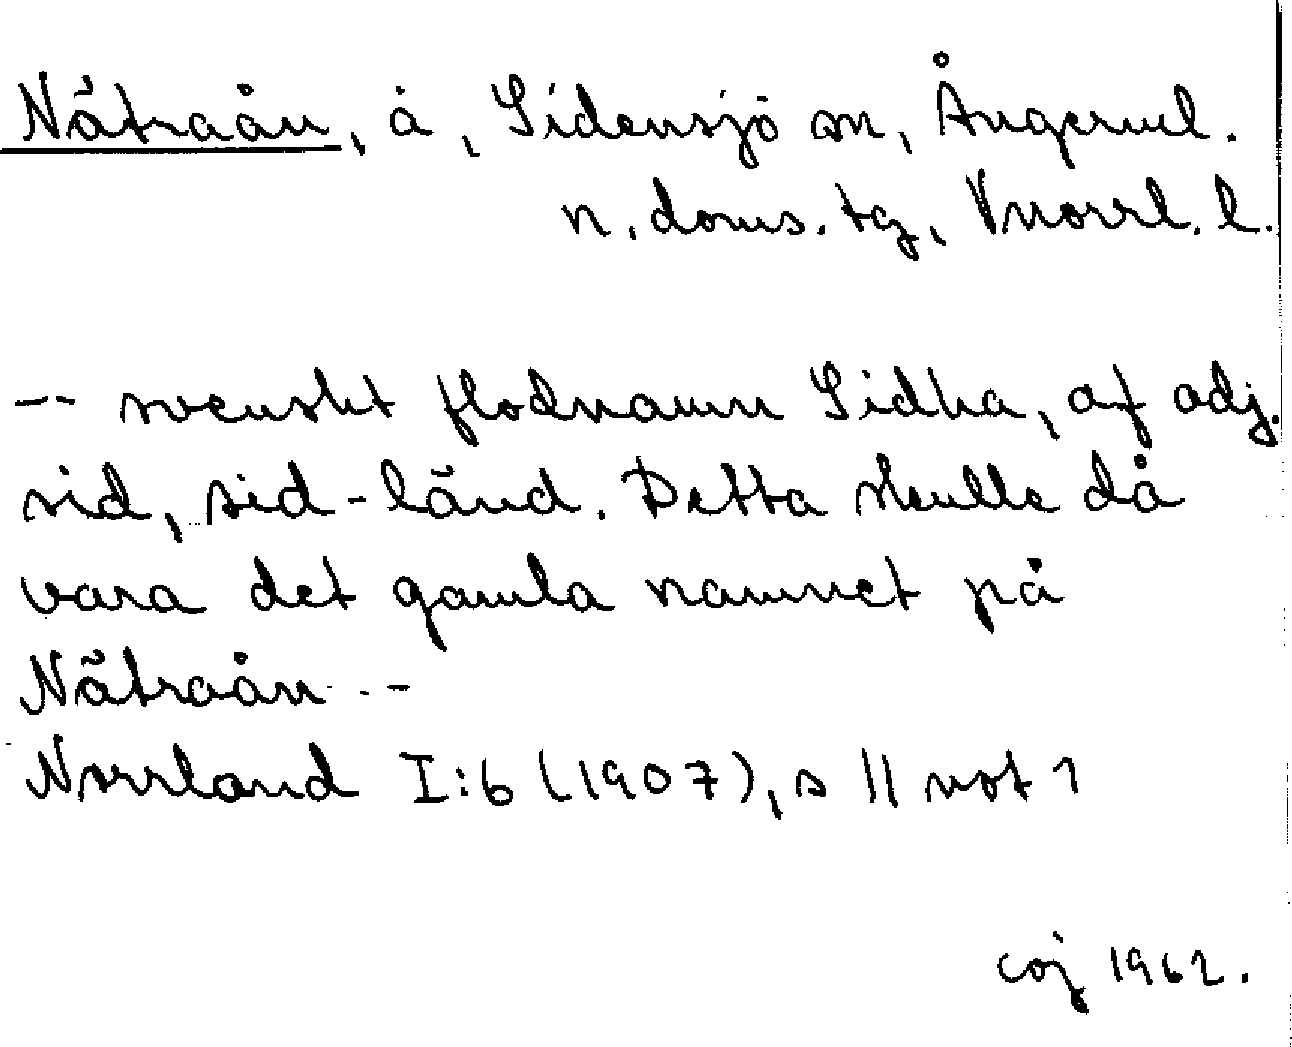 Nätraån, å, Sidensjö sn, Ångerml.
n. doms. tg, Vnorrl. l.
-- svenskt flodnamn Sidha, af adj.
sid, sid-länd. Detta skulle då
vara det gamla namnet på
Nätraån --
Norrland I:6 (1907), s 11 not 1
coj 1962.